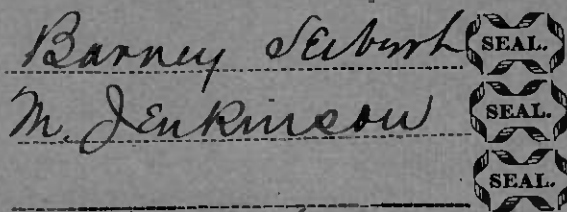 Barney SEAL.
M. Jenkinson SEAL.
SEAL.